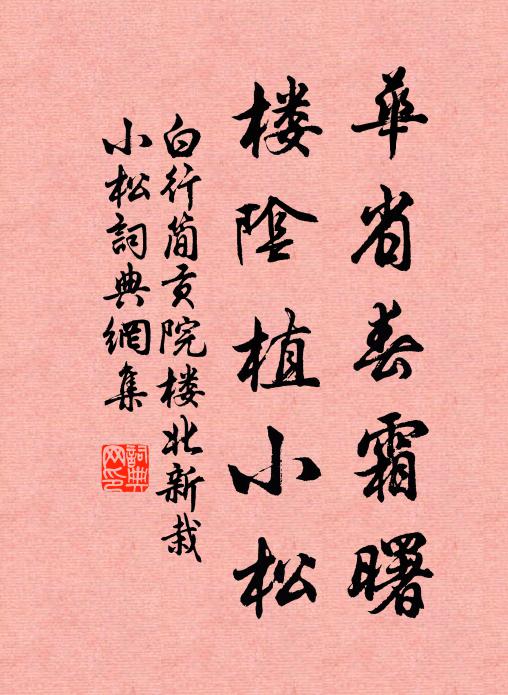 華省春霜曙
楼陰植小松
白行简贡院楼北新栽
小松詞典網集
詞典
网印